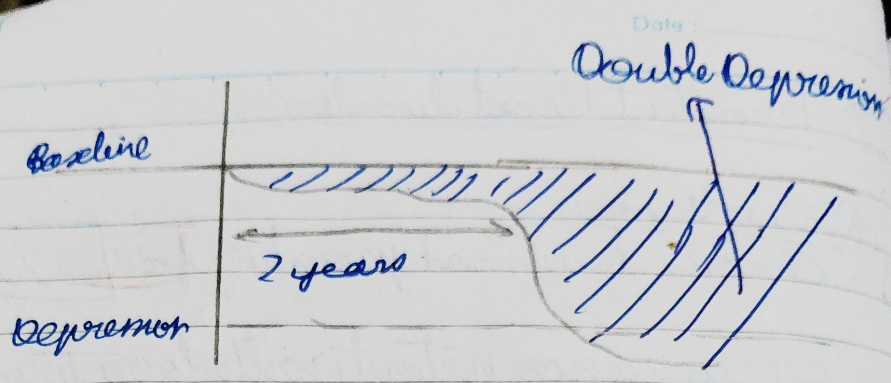 Date :
Double Depression
Baseline
2 years
Depression